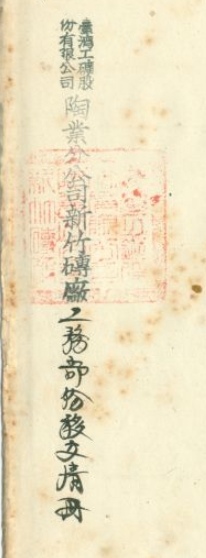 臺灣工礦股
份有限公司
陶業分公司新竹磚廠
工務部份移交清冊